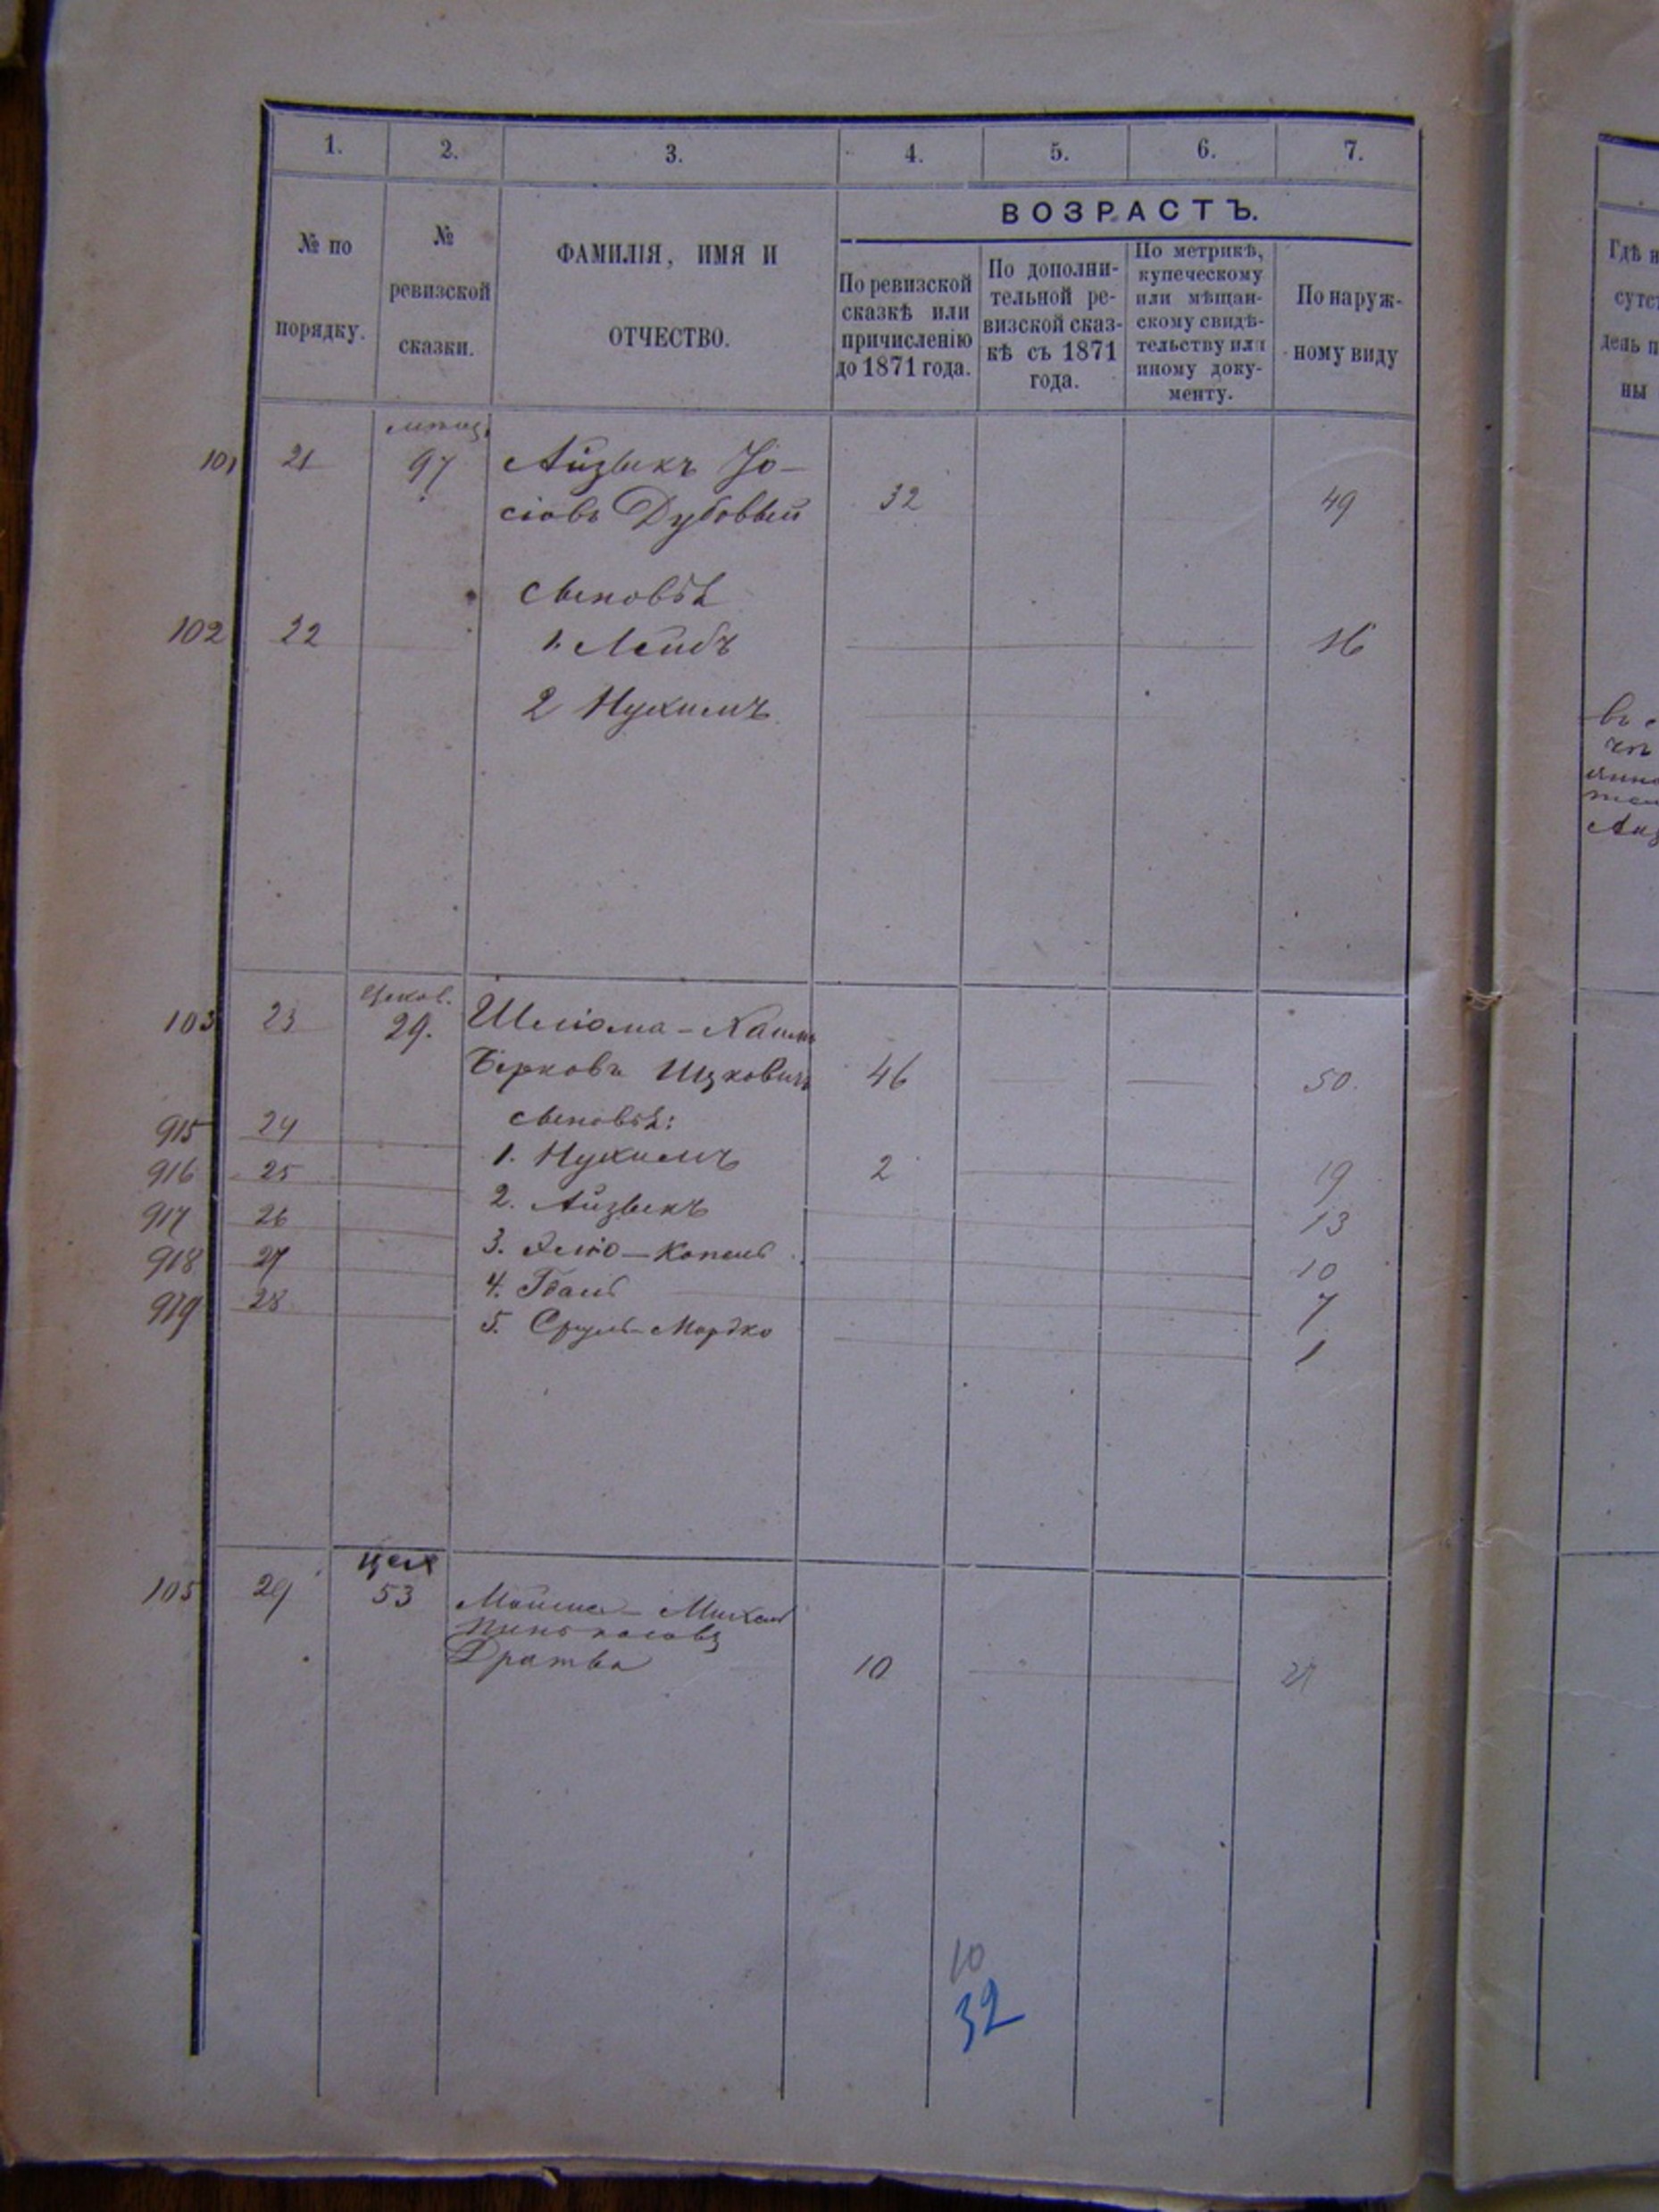 1. 2. 3. 4. 5. 6. 7.
ВОЗРАСТЪ.
№ по
порядку.
№
ревизской
сказки.
ФАМИЛІЯ, ИМЯ И
ОТЧЕСТВО.
По ревизской
сказкѣ или
причисленію
до 1871 года.
По дополни-
тельной ре-
визской сказ-
кѣ съ 1871
года.
По метрикѣ,
купеческому
или мѣщан-
скому свидѣ-
тельству или
иному доку-
менту.
По наруж-
ному виду
101 21 97 Айзыкъ Іо-
сіовъ Дубовый 32 49
сыновья
102 22 1. Лейбъ 16
2 Нухимъ
103 23 29. Шліома-Хаимъ
Берковъ Ицковичъ 46 50.
сыновья:
915 24 1. Нухимъ 2 19
916 25 2. Айзыкъ 13
917 26 3. Эліо-Копель 10
918 27 4. Гдаль 7
919 28 5. Сруль-Мордко 1
цех
105 29 53 Мойше-Михель
Пинькасовъ
Дратва 10
10
32
Гдѣ н
сутс
день п
ны
въ с